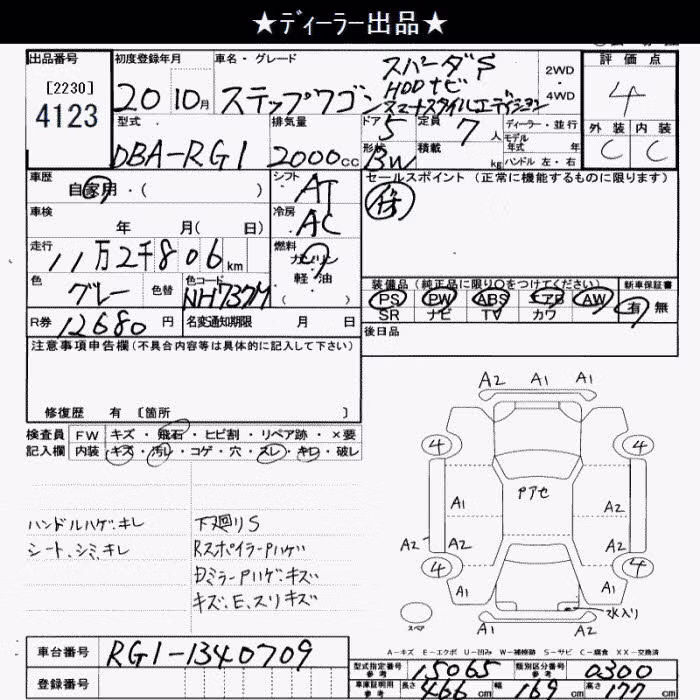 ★ディーラー出品★
出品番号
[2230]
4123
初度登録年月
20 10月
車名・グレード
ステップワゴン スパーダS
HDDナビ
スマートスタイルエディション
2WD
・
4WD
評価点
4
外装 内装
C C
型式
DBA-RG1
排気量
2000cc
ドア 5
定員 7人
形状 BW
積載 kg
ディーラー・並行
モデル年式 年
ハンドル 左・右
車歴
自家用・( )
シフト
AT
車検
年 月( 日)
冷房
AC
走行
11万2千806km
燃料
ガソリン
軽・油
( )
色
グレー
色替
色コード
NH737M
R券 12680円
名変通知期限 月 日
セールスポイント(正常に機能するものに限ります)
保
装備品(純正品に限り○をつけてください)
PS PW ABS エアB AW
SR ナビ TV カワ
新車保証書
有 無
後日品
注意事項申告欄(不具合内容等は具体的に記入して下さい)
修復歴 有 [箇所 ]
検査員 FW キズ・飛石・ヒビ割・リペア跡・×要
記入欄 内装 キズ・汚レ・コゲ・穴・スレ・キレ・破レ
ハンドルハゲ、キレ
シート、シミ、キレ
下廻りS
RスポイラーPハゲ
DミラーPハゲ、キズ
キズ、E、スリキズ
A2 A1 A1
4 4
Pアセ
A1 A2
A2 A2 A2
4 4
A1 A2
水入り
スペア
A2 A2
A-キズ E-エクボ U-凹み W-補修跡 S-サビ C-腐食 XX-交換済
車台番号 RG1-1340709
登録番号
型式指定番号 参考 15065
類別区分番号 参考 0300
車庫証明用 参考 長さ 466cm 幅 169cm 高さ 177cm